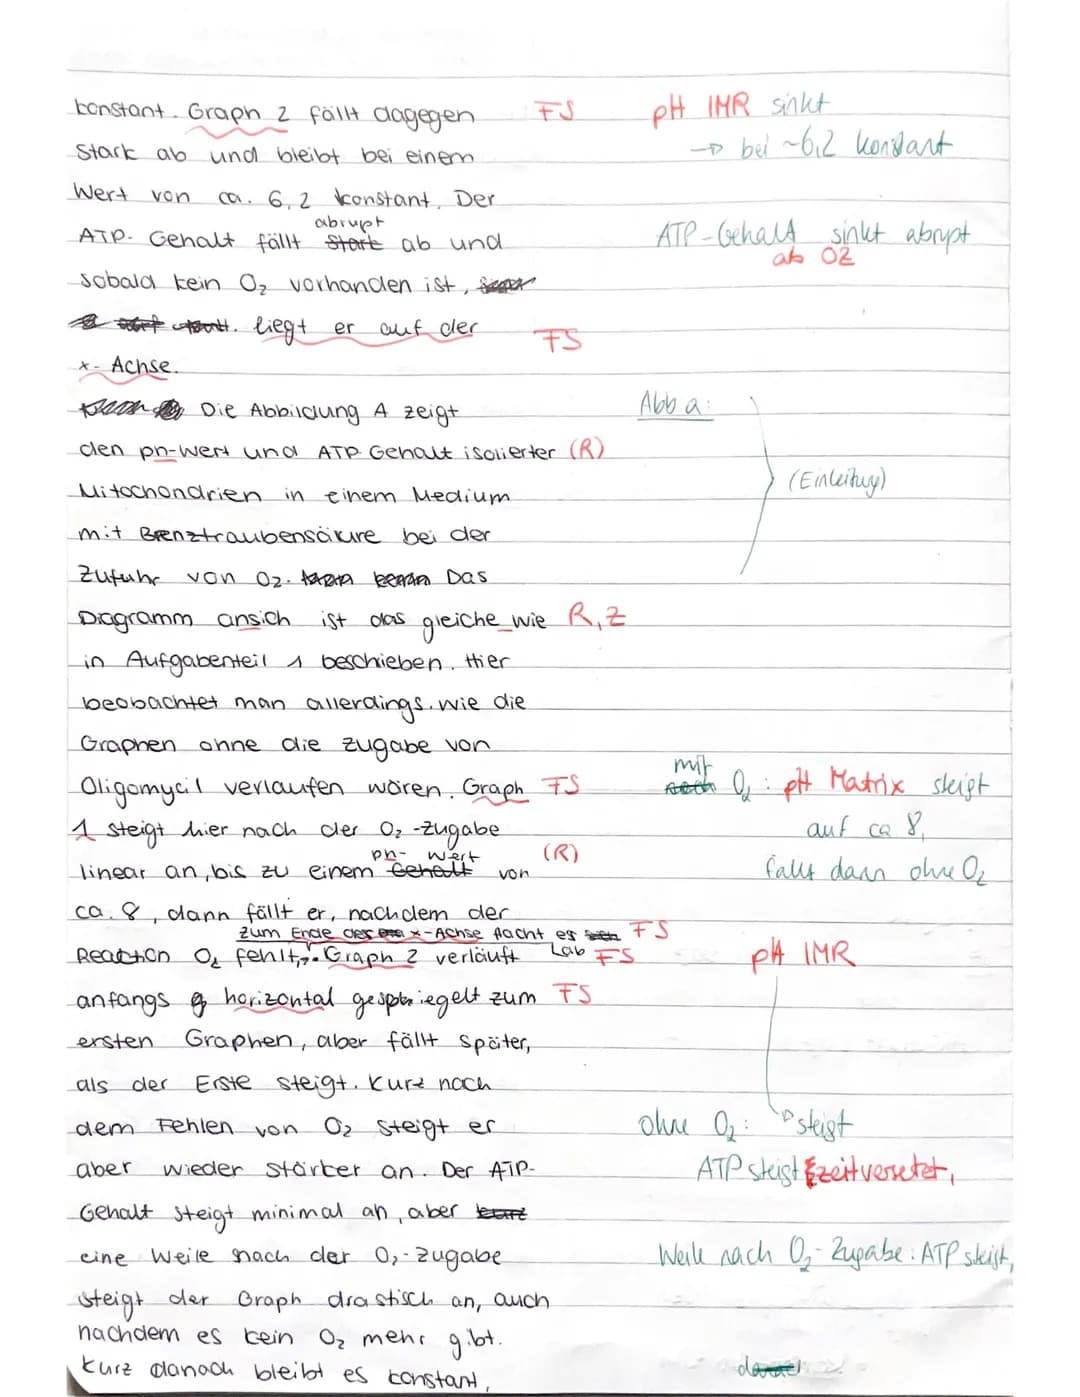 konstant. Graph 2 fällt dagegen FS pH IMR sinkt
stark ab und bleibt bei einem → bei ~6,2 konstant
Wert von ca. 6,2 konstant. Der
abrupt
ATP-Gehalt fällt stark ab und ATP-Gehalt sinkt abrupt
sobald kein O₂ vorhanden ist, ab O2
liegt er auf der FS
x-Achse.
Die Abbildung A zeigt Abb a:
den pH-Wert und ATP Gehalt isolierter (R)
Mitochondrien in einem Medium (Einleitung)
mit Brenztraubensäure bei der
Zufuhr von O2. Das
Diagramm ansich ist das gleiche wie R, Z
in Aufgabenteil 1 beschieben. Hier
beobachtet man allerdings, wie die
Graphen ohne die Zugabe von
Oligomycil verlaufen wären. Graph FS mit O₂: pH Matrix steigt
1 steigt hier nach der O₂-Zugabe auf ca 8,
pH-Wert (R)
linear an, bis zu einem Gehalt von fällt dann ohne O₂
ca. 8, dann fällt er, nachdem der
zum Ende der x-Achse flacht es FS
Reaction O₂ fehlt, Graph 2 verläuft ab FS pH IMR
anfangs horizontal gespiegelt zum FS
ersten Graphen, aber fällt später,
als der Erste steigt. Kurz nach
dem Fehlen von O₂ steigt er ohne O₂: steigt
aber wieder stärker an. Der ATP- ATP steigt zeitversetzt,
Gehalt steigt minimal an, aber
eine Weile nach der O₂-Zugabe Weile nach O₂-Zugabe: ATP steigt,
steigt der Graph drastisch an, auch
nachdem es kein O₂ mehr gibt.
Kurz danach bleibt es konstant,